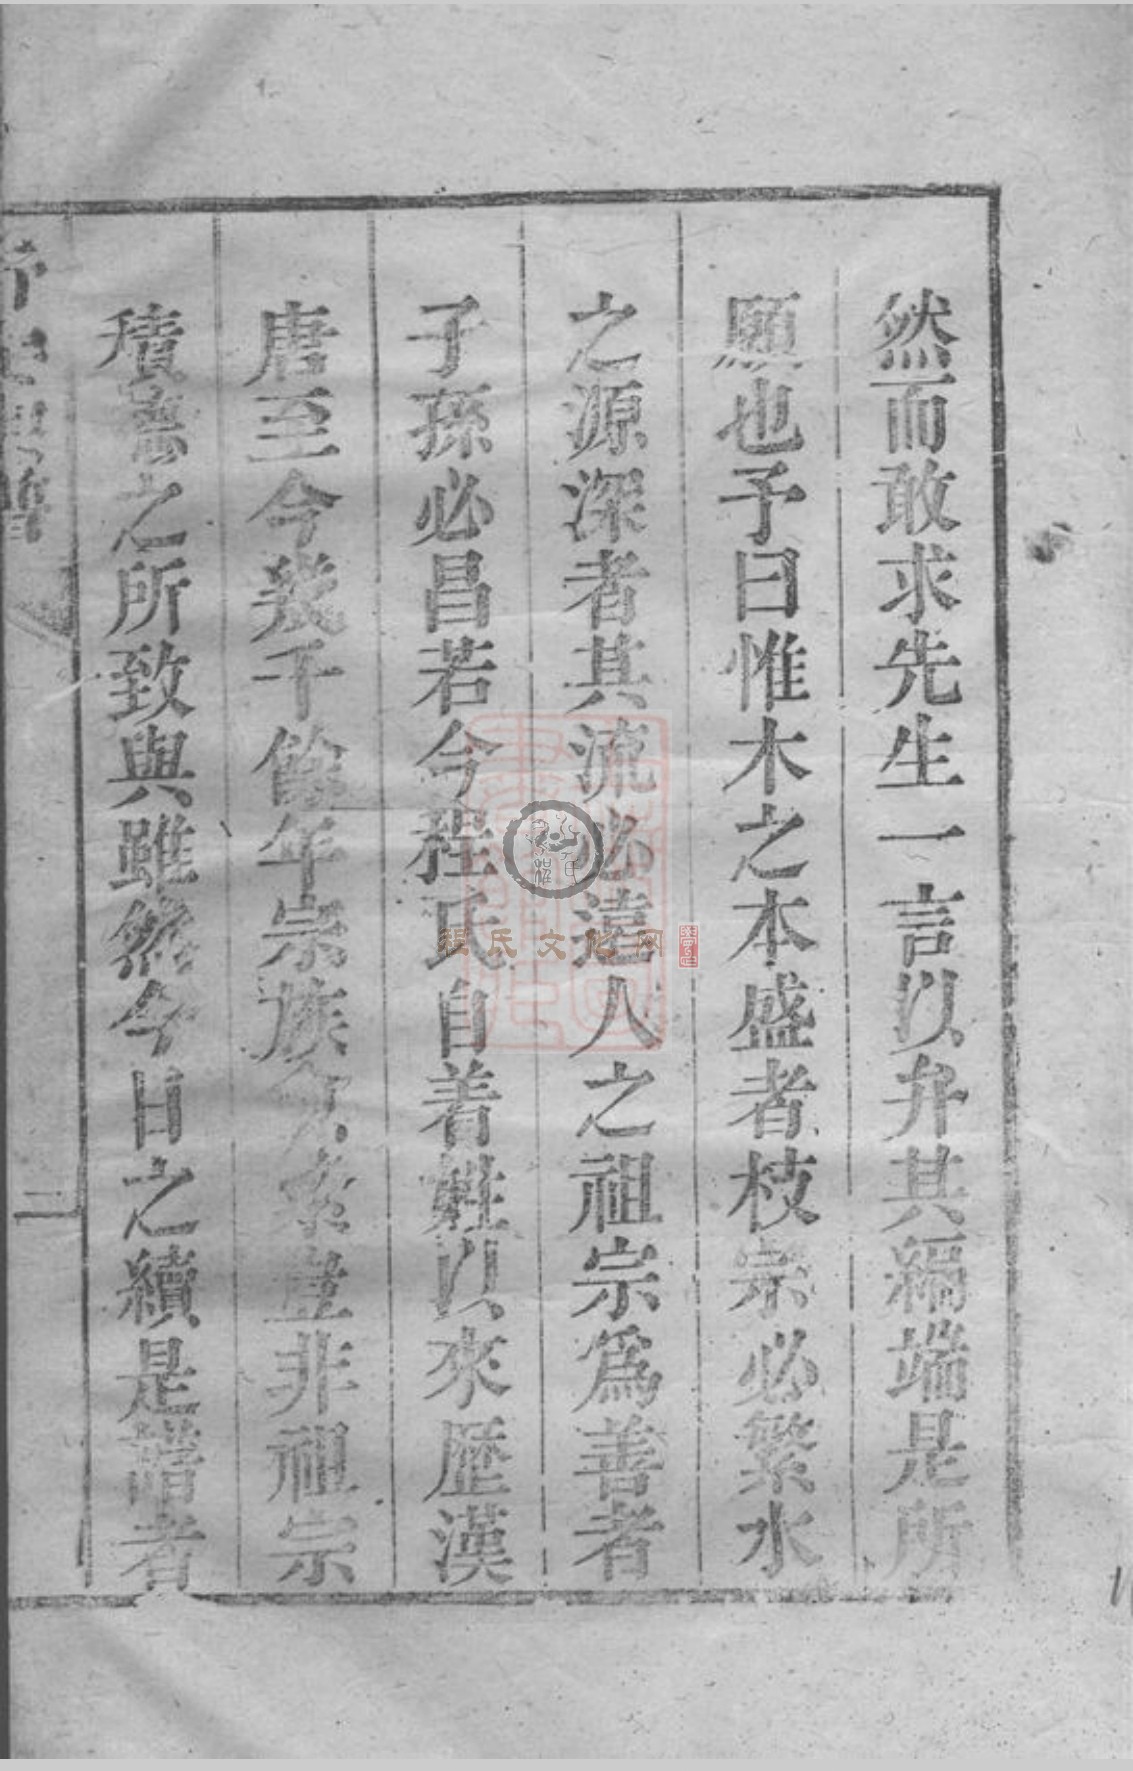 然而敢求先生一言以弁其編端是所
願也予曰惟木之本盛者枝宗必繁水
之源深者其流必遠人之祖宗為善者
子孫必昌若今程氏自着姓以來歷漢
唐至今幾千餘年宗族豈非祖宗
積善之所致與雖然今日之續是譜者
二
程氏文化网